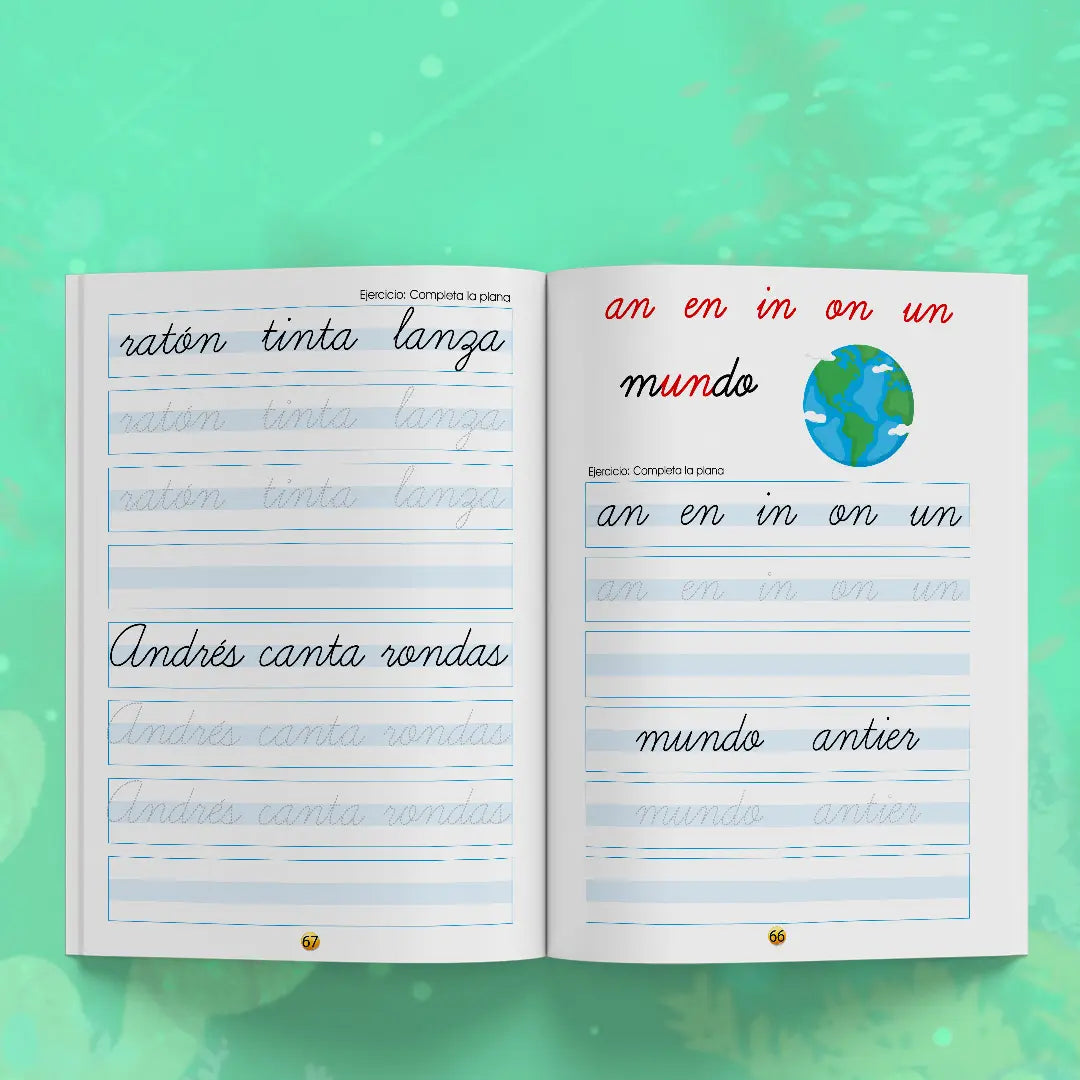 Ejercicio: Completa la plana
ratón tinta lanza
ratón tinta lanza
ratón tinta lanza
Andrés canta rondas
Andrés canta rondas
Andrés canta rondas
67
an en in on un
mundo
Ejercicio: Completa la plana
an en in on un
an en in on un
mundo antier
mundo antier
66